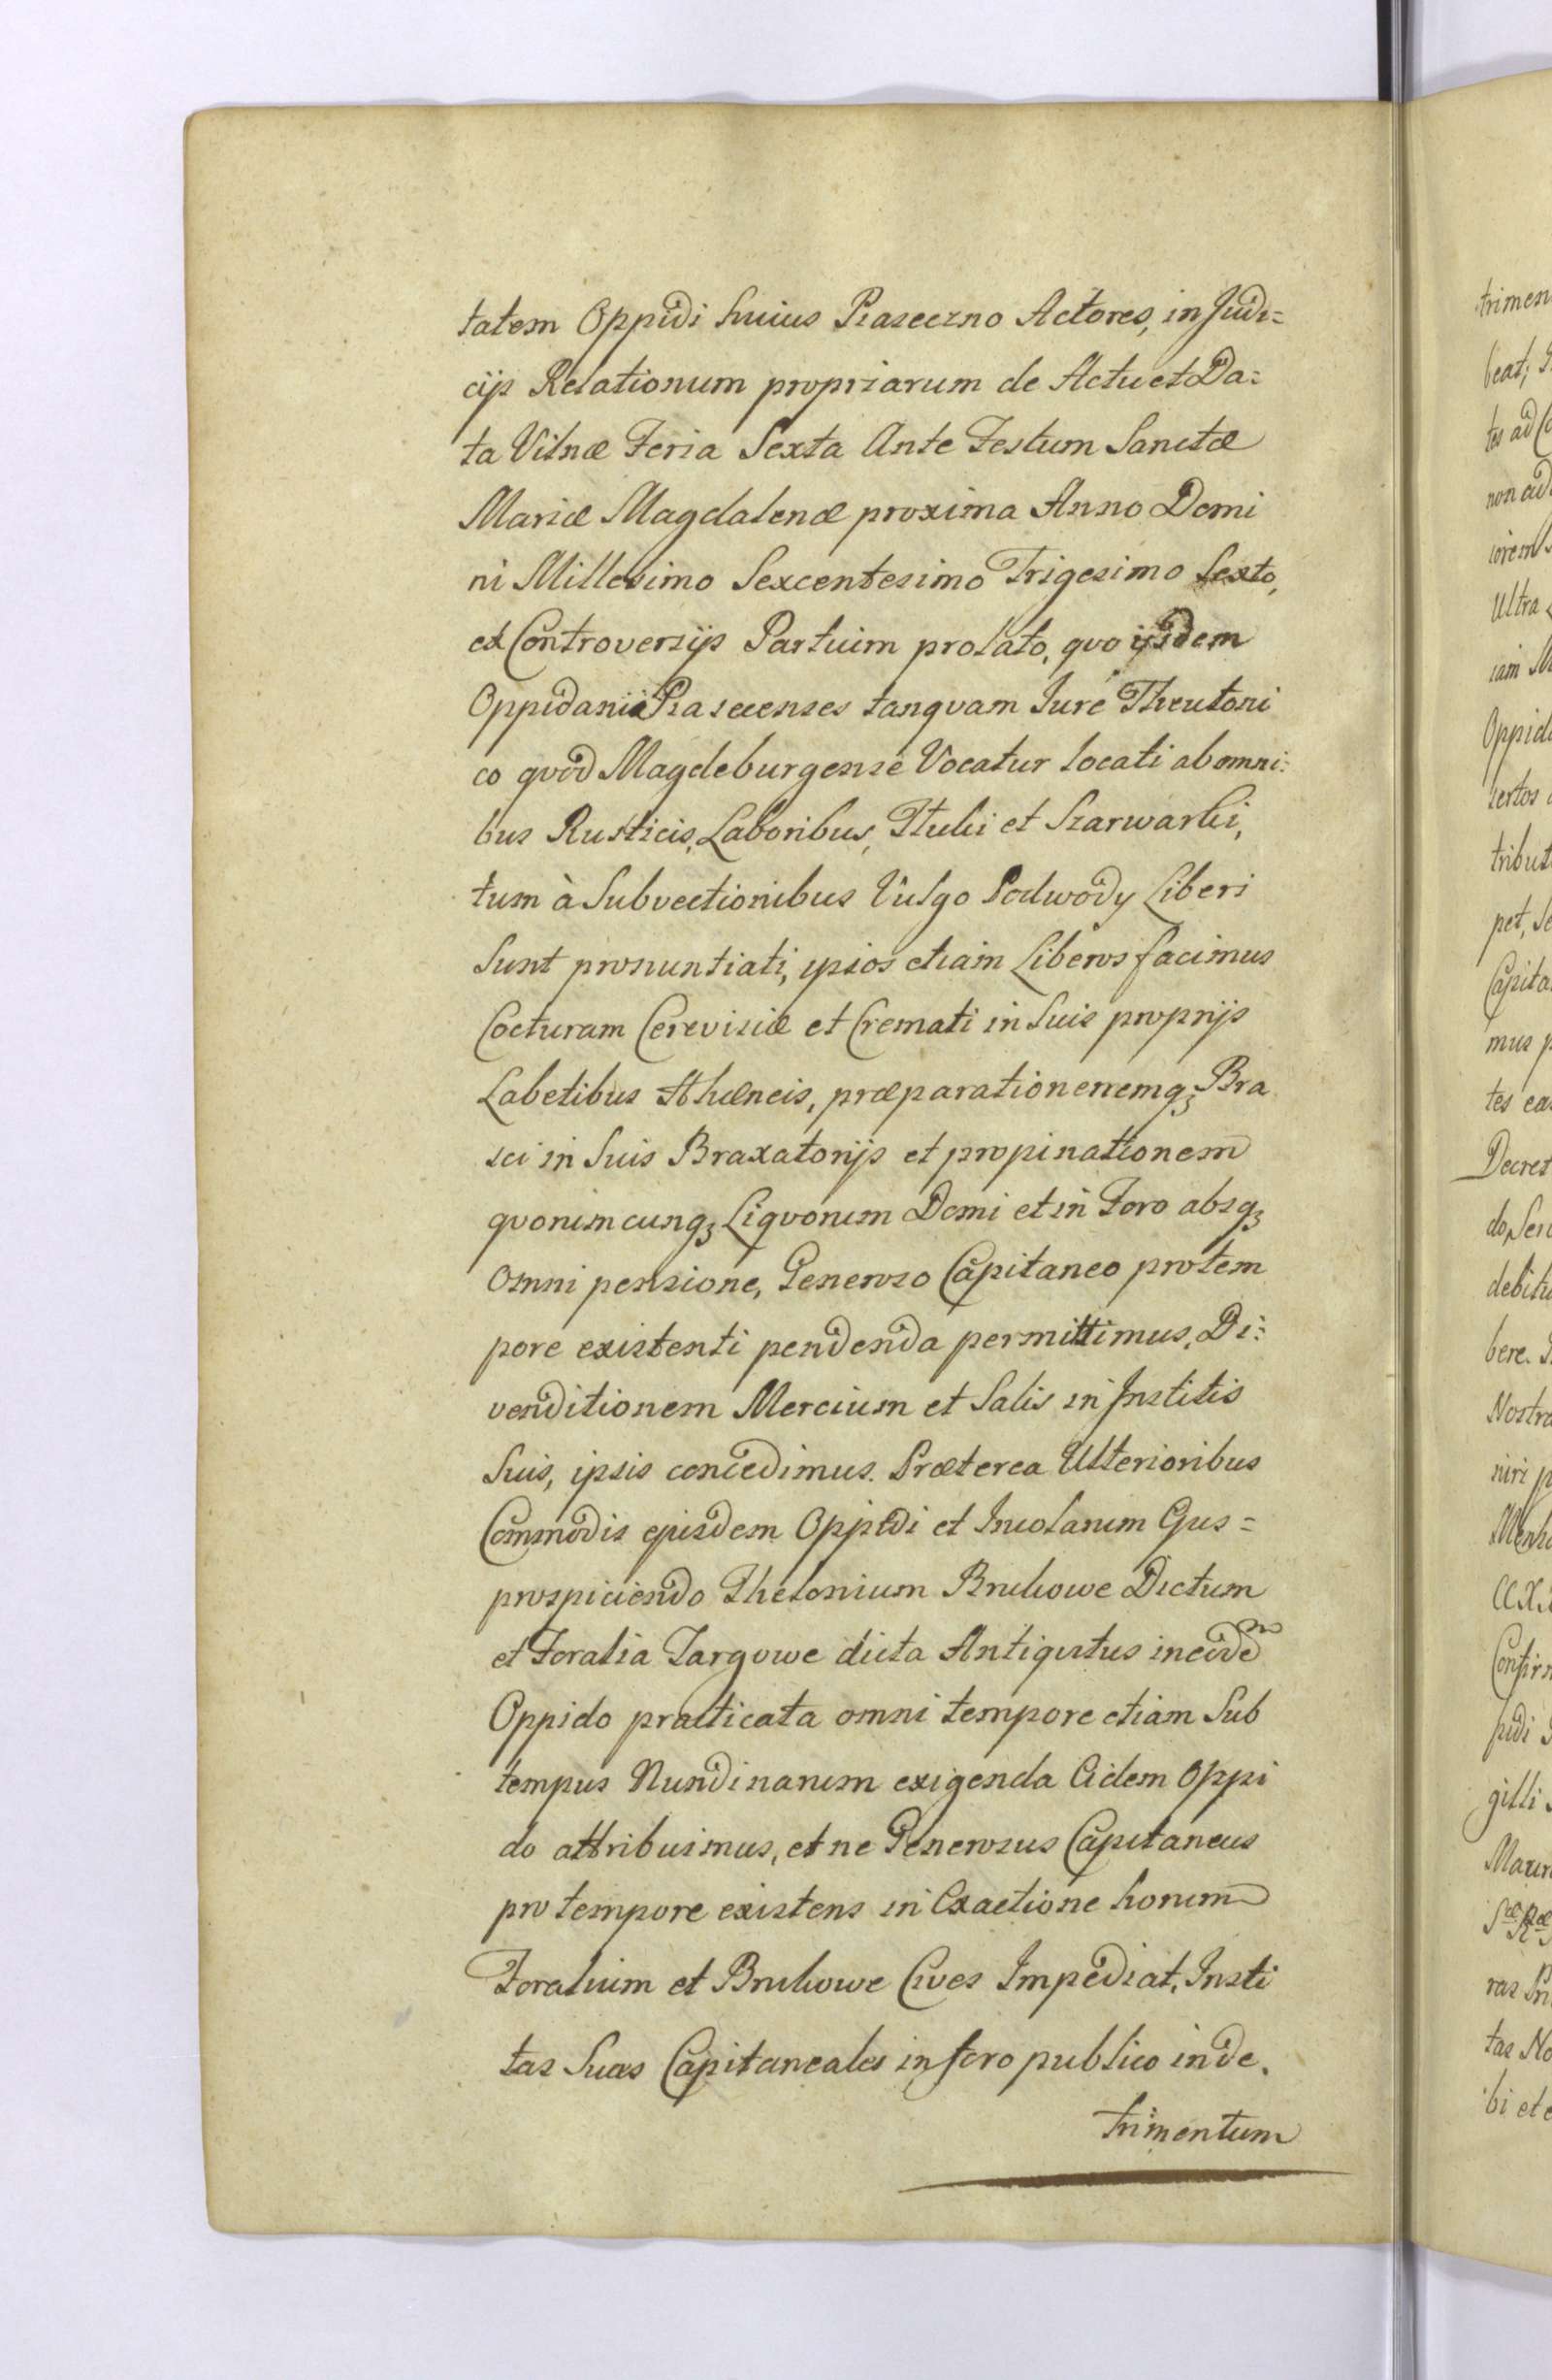 tatem Oppidi huius Piaseczno Actores, in Judi=
cijs Relationum propriarum de Actu et Da=
ta Vilnæ Feria Sexta Ante Festum Sanctæ
Mariæ Magdalenæ proxima Anno Domi
ni Millesimo Sexcentesimo Trigesimo Sexto,
ex Controversijs Partium prolato, quo ijsdem
Oppidani Piasecenses tanqvam Jure Theutoni
co qvod Magdeburgense Vocatur locati ab omni:
bus Rusticis, Laboribus, Tłuki et Szarwarki,
tum à Subvectionibus Vulgo Podwody Liberi
Sunt pronuntiati, ipsos etiam Liberos facimus
Cocturam Cerevisiæ et Cremati in Suis proprijs
Labetibus Ahæneis, præparationenemq3 Bra
sci in Suis Braxatorijs et propinationem
qvorumcunq3 Liqvorum Domi et in Foro absq3
Omni pensione, Generoso Capitaneo pro tem
pore existenti pendenda permittimus, Di:
venditionem Mercium et Salis in Institis
Suis, ipsis concedimus. Præterea Ulterioribus
Commodis ejusdem Oppidi et Incolarum Ejus=
prospiciendo Thelonium Brukowe Dictum
et Foralia Targowe dicta Antiqvitus in eodem
Oppido practicata omni tempore etiam Sub
tempus Nundinarum exigenda Eidem Oppi
do attribuimus, et ne Generosus Capitaneus
pro tempore existens in Exactione horum
Foralium et Brukowe Cives Impediat, Insti
tas Suas Capitaneales in foro publico in de.
trimentum
trimen
beat;
tes ad
iorem
Ultra
iam
Oppid
sertos
tribut
pet, Se
Capita
mus p
tes ea
Decret
do, Ser
debitu
bere.
Nostra
niri p
CCX
Confir
pidi
gilli
tas No
bi et e